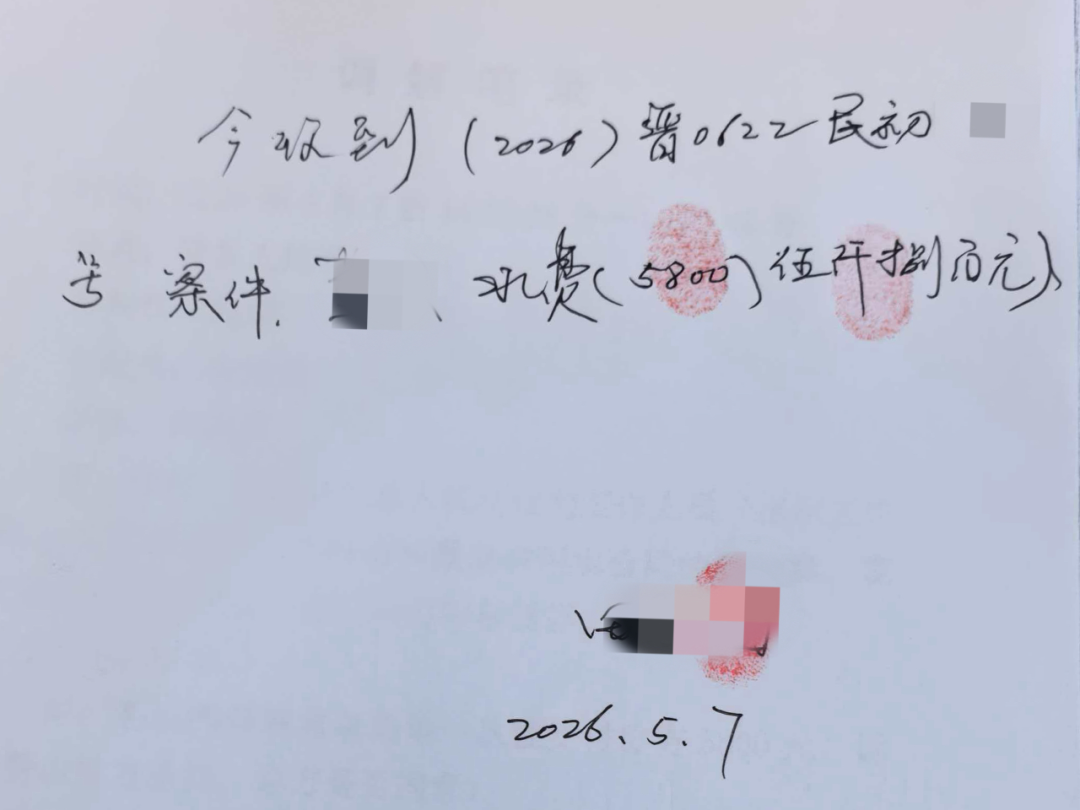 今收到(2026)晋0622民初
号案件. 、水费(5800)伍仟捌佰元、
2026.5.7